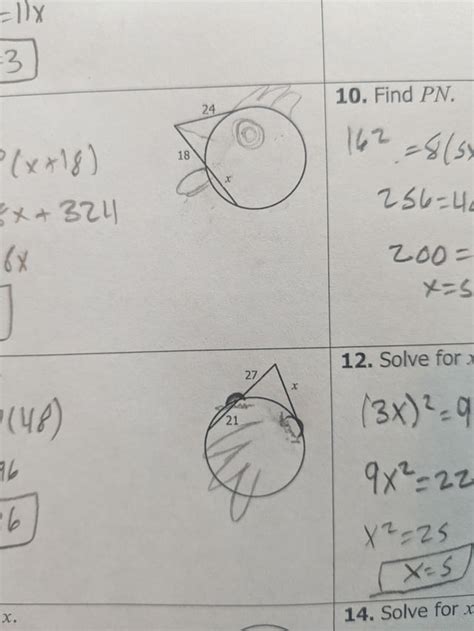 =11x
3
24
18
x
(x+18)
x + 324
6x
10. Find PN.
16² = 8(5x
256=40
200 =
x=5
27
x
21
(48)
96
6
12. Solve for x
(3x)² = 9
9x² = 22
x² = 25
x=5
x.
14. Solve for x